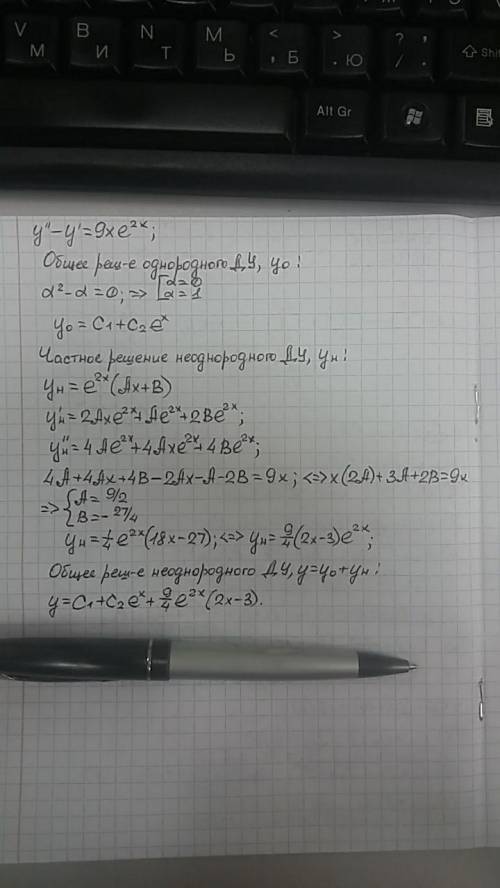 V B N T M < > ? ,
М И Т Ь , Б . Ю / .
Shift
Alt Gr
y''-y'=9xe^2x;
Общее реш-е однородного ДУ, y₀:
α²-α=0; => [α=0
α=1
y₀=C₁+C₂e^x
Частное решение неоднородного ДУ, yн:
yн=e^2x(Ax+B)
y'н=2Axe^2x+Ae^2x+2Be^2x;
y''н=4Ae^2x+4Axe^2x+4Be^2x;
4A+4Ax+4B-2Ax-A-2B=9x; <=> x(2A)+3A+2B=9x
=> {A=9/2
B=-27/4
yн=1/4e^2x(18x-27); <=> yн=9/4(2x-3)e^2x;
Общее реш-е неоднородного ДУ, y=y₀+yн:
y=C₁+C₂e^x+9/4e^2x(2x-3).